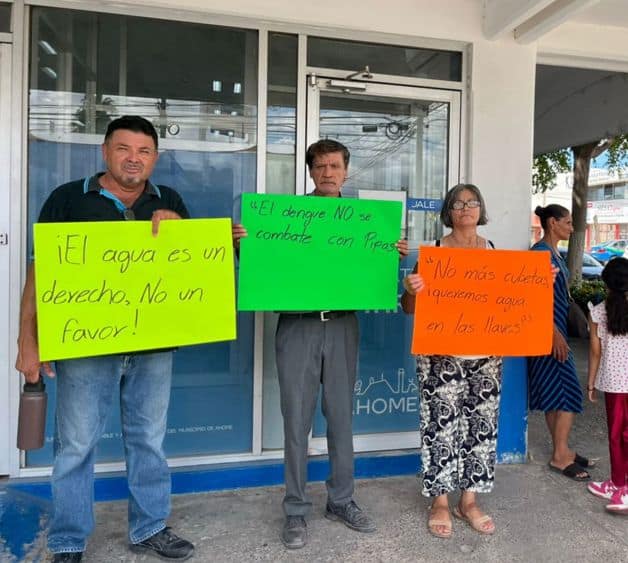 ¡El agua es un
derecho, No un
favor!
"El dengue NO se
combate con Pipas
"No más cubetas,
¡queremos agua
en las llaves"
JALE
HOME
DEL MUNICIPIO DE AHOME